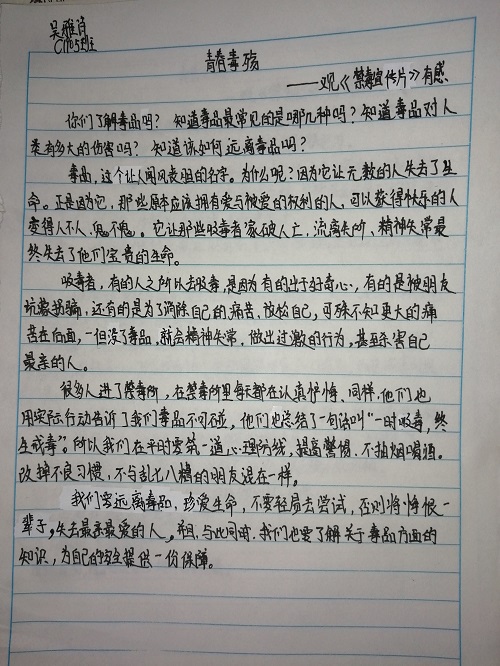 吴雅肖
C1705班
青春毒殇
——观《禁毒宣传片》有感
你们了解毒品吗？知道毒品最常见的是哪几种吗？知道毒品对人
类有多大的伤害吗？知道该如何远离毒品吗？
毒品，这个让人闻风丧胆的名字。为什么呢？因为它让无数的人失去了生
命。正是因为它，那些原本应该拥有爱与被爱的权利的人，可以获得快乐的人
变得人不人、鬼不鬼。它让那些吸毒者家破人亡，流离失所、精神失常最
终失去了他们宝贵的生命。
吸毒者，有的人之所以去吸毒，是因为有的出于好奇心，有的是被朋友
坑蒙拐骗，还有的是为了消除自己的痛苦、放松自己，可殊不知更大的痛
苦在后面，一但没了毒品，就会精神失常，做出过激的行为，甚至杀害自己
最亲的人。
很多人进了禁毒所，在禁毒所里每天都在认真忏悔、同样，他们也
用实际行动告诉了我们毒品不可碰，他们也总结了一句话叫“一时吸毒，终
生戒毒”。所以我们在平时要筑一道心理防线，提高警惕、不抽烟喝酒。
改掉不良习惯，不与乱七八糟的朋友混在一样。
我们要远离毒品，珍爱生命，不要轻易去尝试，否则将悔恨一
辈子，失去最亲最爱的人。并且，与此同时，我们也要了解关于毒品方面的
知识，为自己的安全提供一份保障。